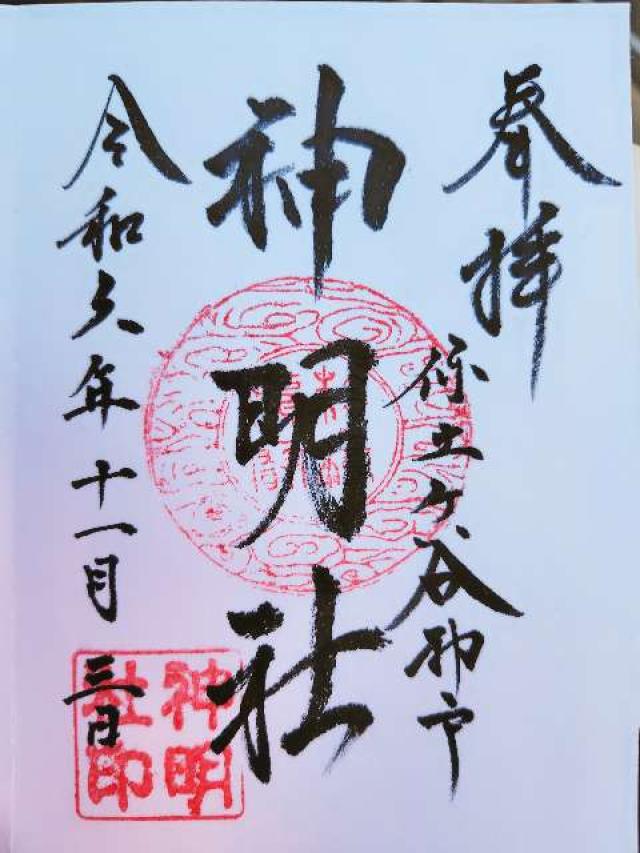 奉拝
保土ケ谷神戸
神明社
令和六年十一月三日
神明社印